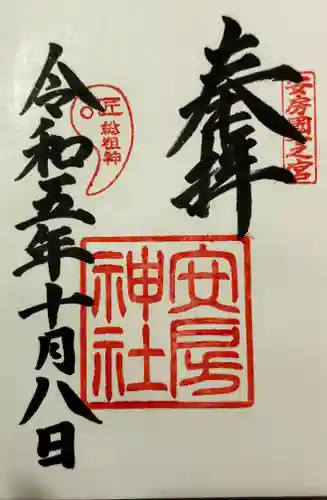 奉拝
安房国一之宮
安房
神社
匠
総祖神
令和五年十月八日